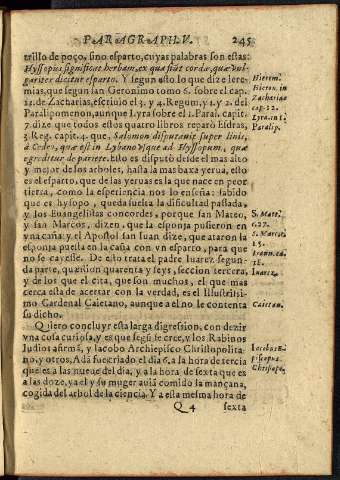 PARAGRAPH. V. 245
trillo de poço, sino esparto, cuyas palabras son estas:
Hyssopus significat herbam, ex qua fiūt cordæ, quæ vul-
gariter dicitur esparto. Y segun esto lo que dize Iere-
mias, que segun ſan Geronimo tomo 6. sobre el cap. Hierem.
12. de Zacharias, escriuio el 3. y 4. Regum, y 1. y 2. del Hieron. in Zachariæ cap. 12.
Paralipomenon, aunque Lyra sobre el 1. Paral. capit. Lyra. in 1. Paralip.
7. dize que todos estos quatro libros reparò Esdras,
3. Reg. capit. 4. que, Salomon disputauit super linis,
à Cedro, quæ est in Lybano vsque ad Hyssopum, quæ
egreditur de pariete. Esto es disputò desde el mas alto
y mejor de los arboles, hasta la mas baxa yerua, esto
es el esparto, que de las yeruas es la que nace en peor
tierra, como la esperiencia nos lo enseña: sabido
que es hysopo, queda suelta la dificultad passada,
y los Euangelistas concordes, porque san Mateo, S. Mate. c. 27.
y san Marcos, dizen, que la esponja pusieron en
vna caña: y el Apostol san Iuan dize, que ataron la S. Marco. 15.
esponja puesta en la caña con vn esparto, para que
no se cayesse. De esto trata el padre Iuarez segun-
da parte, question quarenta y seys, seccion tercera, Iuarez.
y de los que el cita, que son muchos, el que mas
cerca esta de acertar con la verdad, es el Illustrissi-
mo Cardenal Caietano, aunque a el no le contenta Caietan.
su dicho.
Quiero concluyr esta larga digression, con dezir
vna cosa curiosa, y es que segū se cree, y los Rabinos
Iudios afirmā, y Iacobo Archiepisco Christopolita- Iacobus E-
no, y otros, Adā fue criado el dia 6. a la hora de tercia piscopus
que es a las nueue del dia, y a la hora de sexta que es Chrisopo.
a las doze, ya el y su muger auiā comido la mançana,
cogida del arbol de la ciencia. Y a esta mesma hora de
Q 4 sexta